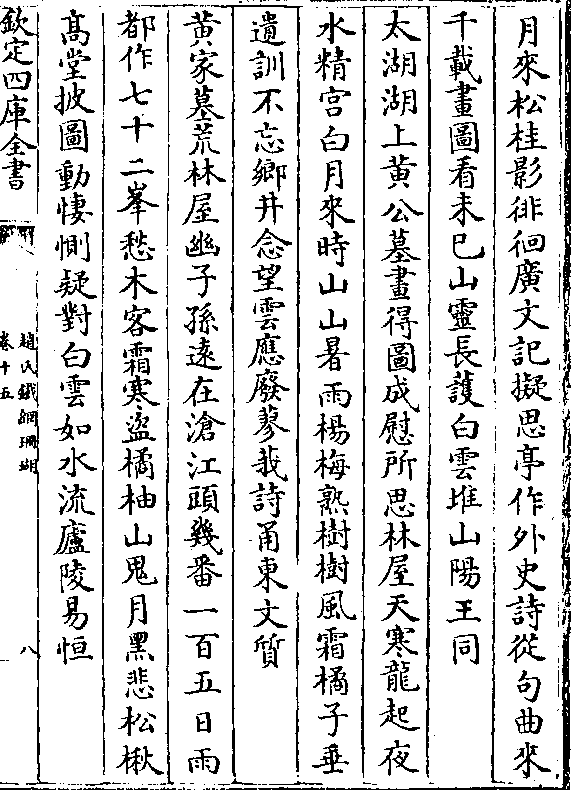 月來松桂影徘徊廣文記擬思亭作外史詩從句曲來
千載畫圖看未已山靈長護白雲堆山陽王同
太湖湖上黄公墓畫得圖成慰所思林屋天寒龍起夜
水精宫白月來時山山暑雨楊梅熟樹樹風霜橘子垂
遺訓不忘鄉井念望雲應廢蓼莪詩甬東文質
黄家墓荒林屋幽子孫遠在滄江頭幾番一百五日雨
都作七十二峯愁木客霜寒盜橘柚山鬼月黑悲松楸
髙堂披圖動悽惻疑對白雲如水流廬陵易恒
欽定四庫全書
趙氏鐵網珊瑚
卷十五
八